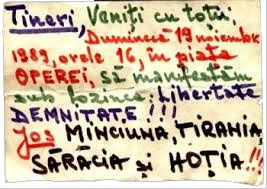 Tineri, Veniți cu toții
Duminică 19 noiembrie
1989, orele 16, în piața
OPEREI, să manifestăm
sub lozinca: Libertate
DEMNITATE!!!
Jos MINCIUNA, TIRANIA,
SĂRĂCIA și HOȚIA!!